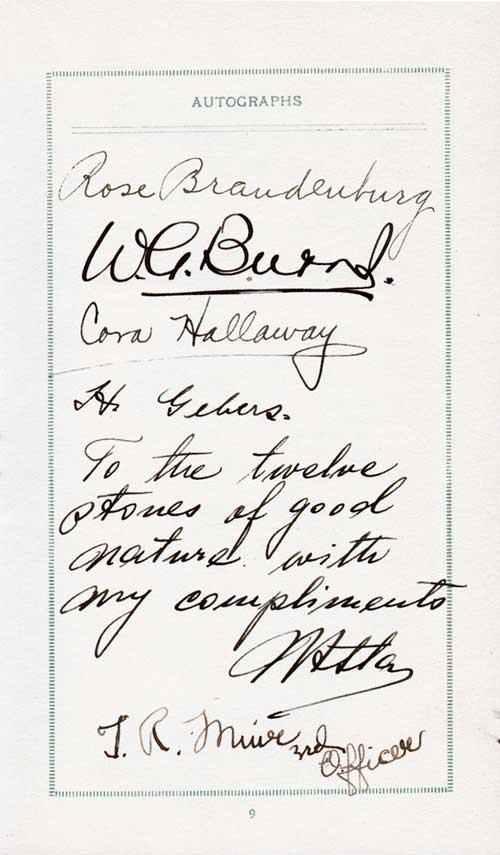 AUTOGRAPHS
Rose Brandenburg
W. G. Burns.
Cora Hallaway
H. Gebers.
To the twelve
stones of good
nature with
my compliments
T. R. Muir 3rd Officer
9